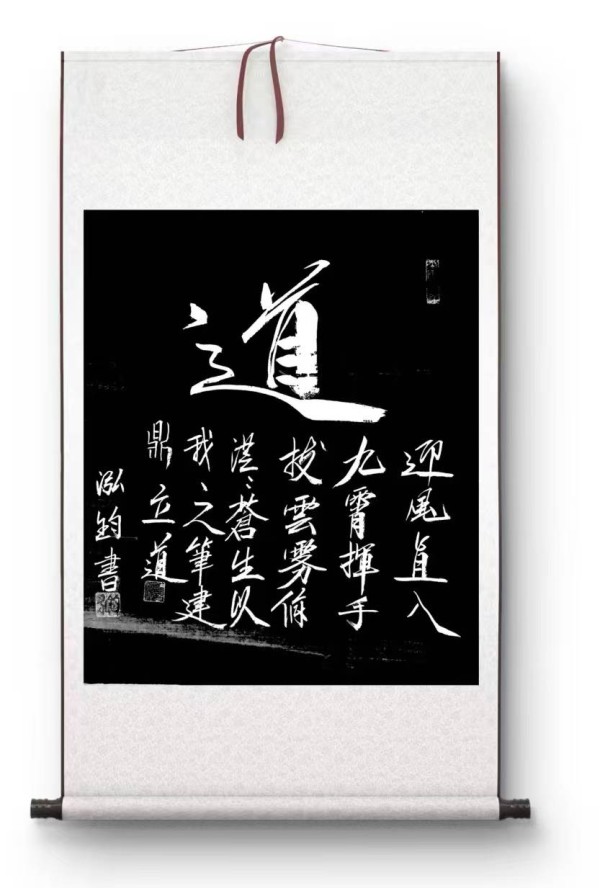 道
迎風直入
九霄揮手
雲雾
茫々蒼生以
我之筆建
鼎立道
泓鈞書